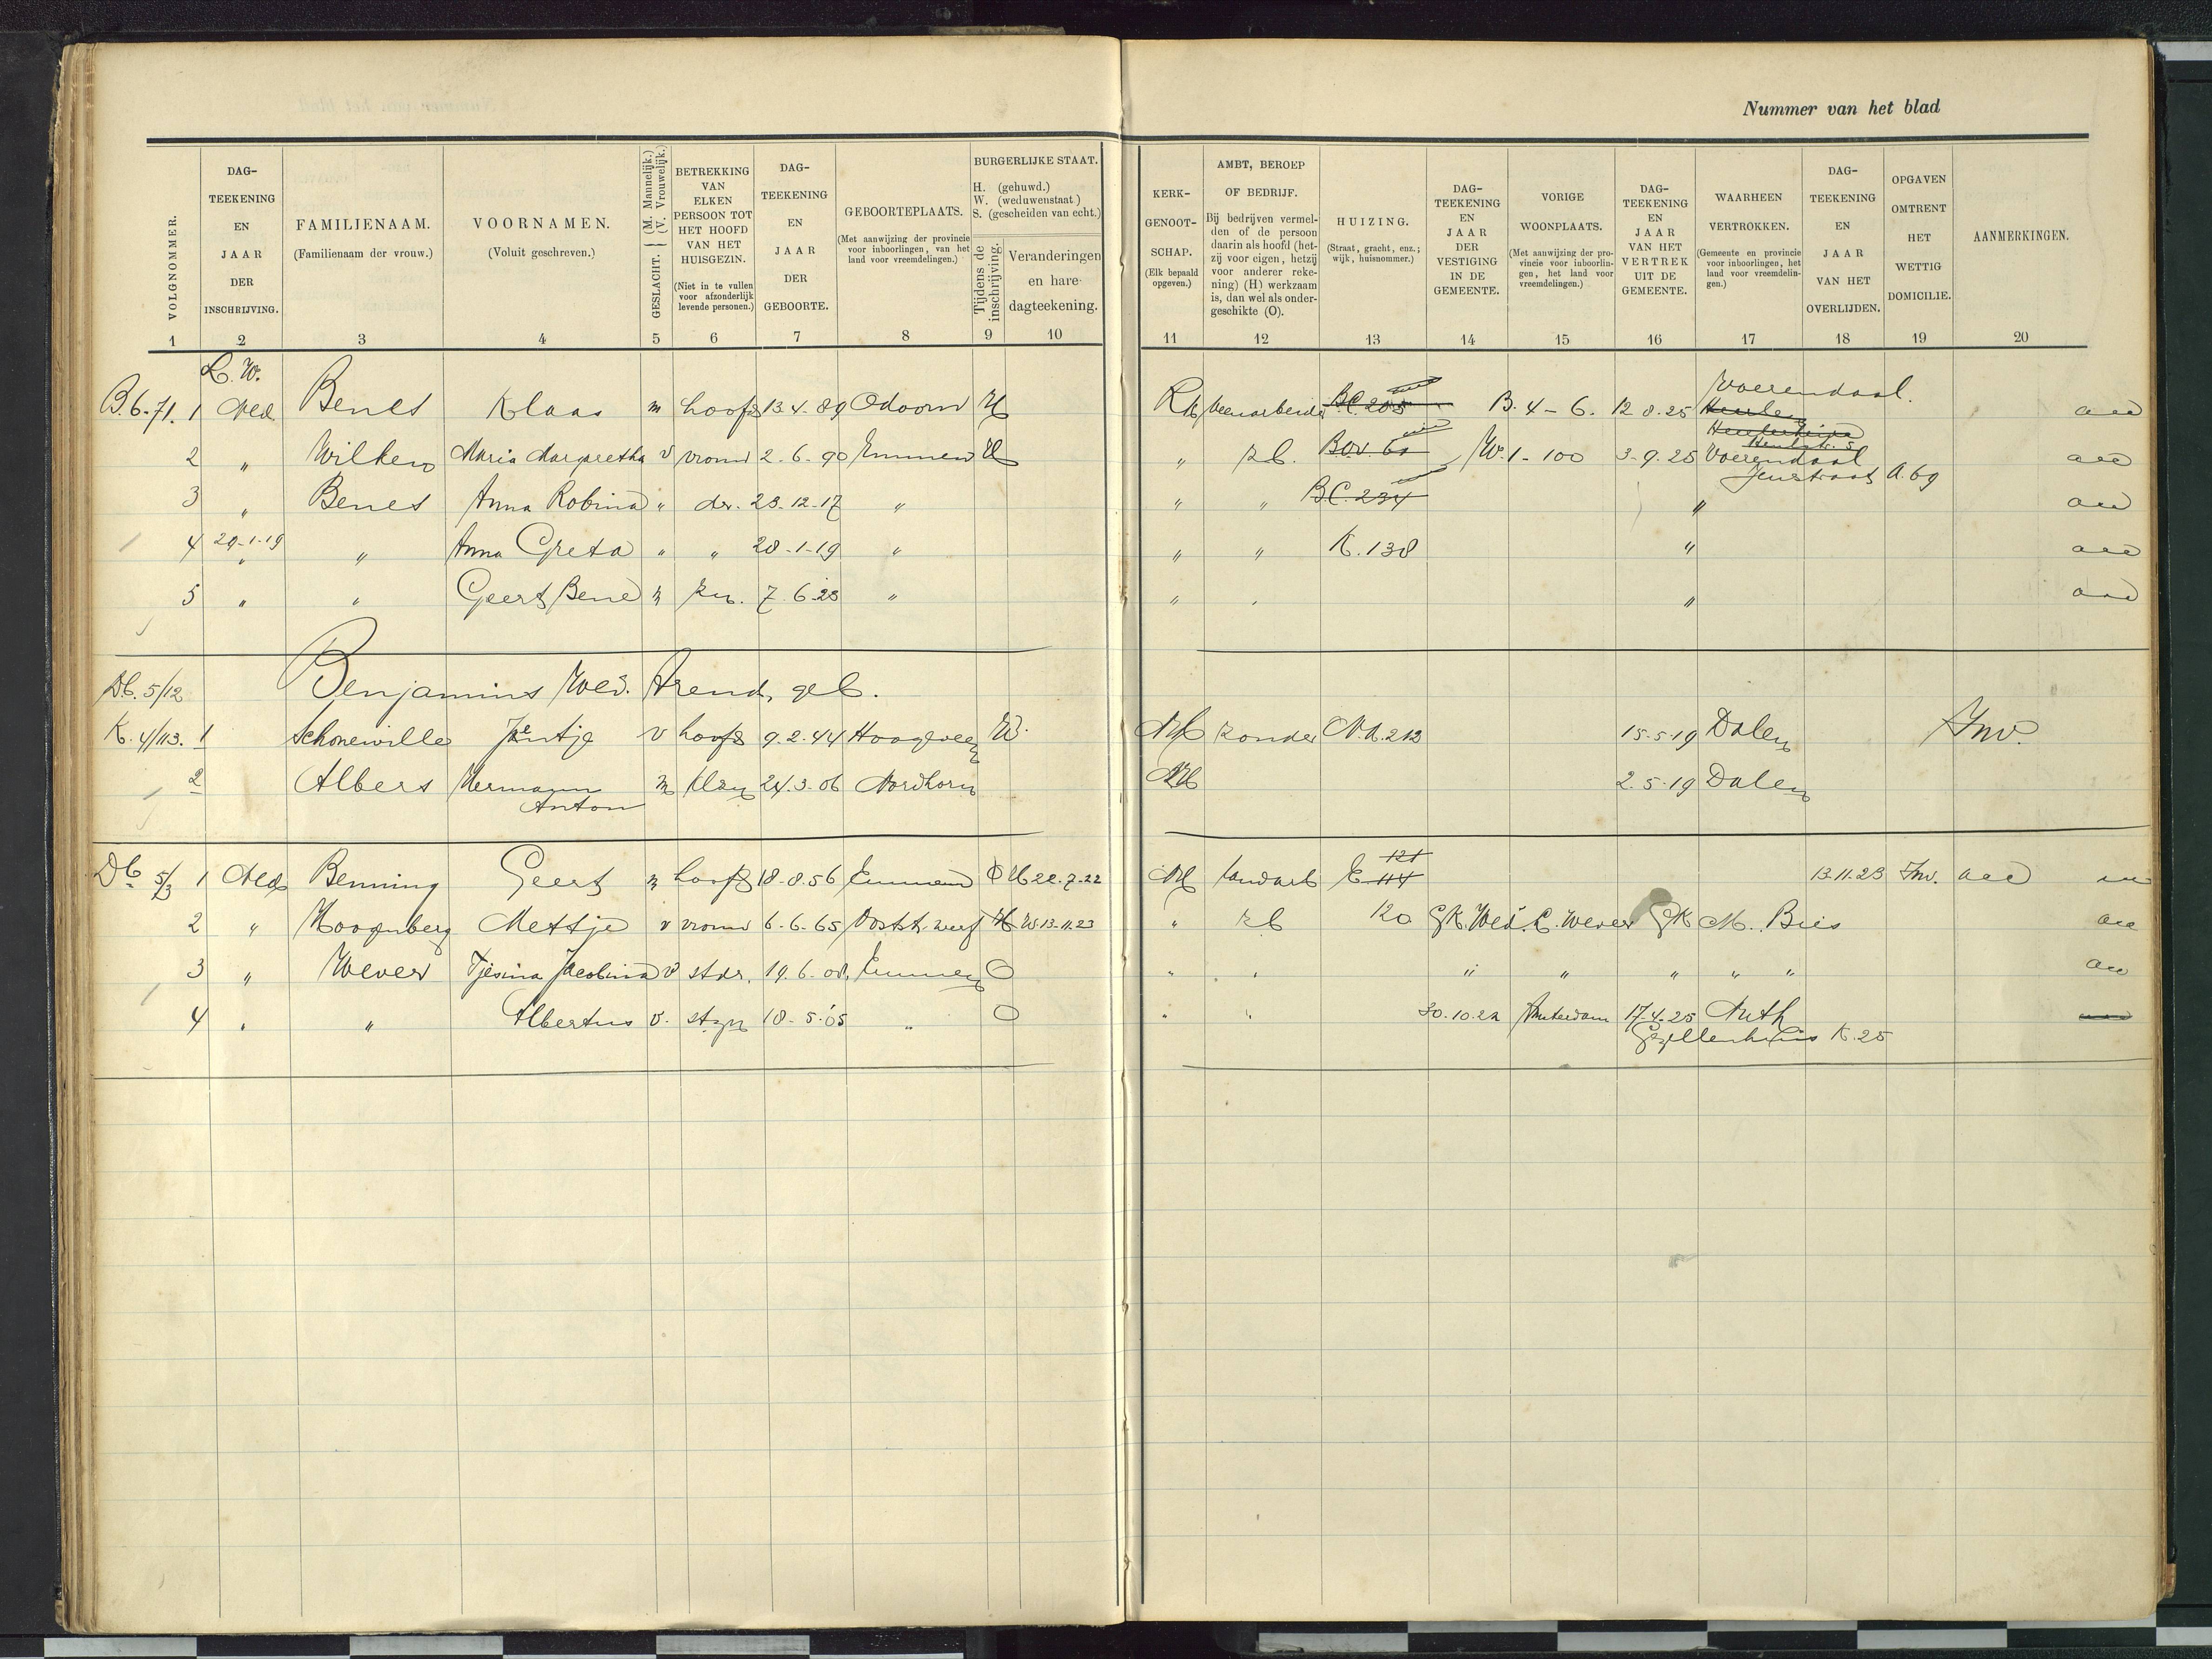 Nummer van het blad
VOLGNOMMER.
1
DAG-
TEEKENING
EN
JAAR
DER
INSCHRIJVING.
2
FAMILIENAAM.
(Familienaam der vrouw.)
3
VOORNAMEN.
(Voluit geschreven.)
4
GESLACHT. (M. Mannelijk.)
(V. Vrouwelijk.)
5
BETREKKING
VAN
ELKEN
PERSOON TOT
HET HOOFD
VAN HET
HUISGEZIN.
(Niet in te vullen
voor afzonderlijk
levende personen.)
6
DAG-
TEEKENING
EN
JAAR
DER
GEBOORTE.
7
GEBOORTEPLAATS.
(Met aanwijzing der provincie
voor inboorlingen, van het
land voor vreemdelingen.)
8
BURGERLIJKE STAAT.
H. (gehuwd.)
W. (weduwenstaat.)
S. (gescheiden van echt.)
Tijdens de
inschrijving.
9
Veranderingen
en hare
dagteekening.
10
KERK-
GENOOT-
SCHAP.
(Elk bepaald
opgeven.)
11
AMBT, BEROEP
OF BEDRIJF.
Bij bedrijven vermel-
den of de persoon
daarin als hoofd (het-
zij voor eigen, hetzij
voor anderer reke-
ning) (H) werkzaam
is, dan wel als onder-
geschikte (O).
12
HUIZING.
(Straat, gracht, enz.;
wijk, huisnommer.)
13
DAG-
TEEKENING
EN
JAAR
DER
VESTIGING
IN DE
GEMEENTE.
14
VORIGE
WOONPLAATS.
(Met aanwijzing der pro-
vincie voor inboorlin-
gen, het land voor
vreemdelingen.)
15
DAG-
TEEKENING
EN
JAAR
VAN HET
VERTREK
UIT DE
GEMEENTE.
16
WAARHEEN
VERTROKKEN.
(Gemeente en provincie
voor inboorlingen, het
land voor vreemdelin-
gen.)
17
DAG-
TEEKENING
EN
JAAR
VAN HET
OVERLIJDEN.
18
OPGAVEN
OMTRENT
HET
WETTIG
DOMICILIE.
19
AANMERKINGEN.
20
L.W.
B.6-71. 1 Ned Benes Klaas m hoofd 13.4.89 Odoorn H Rk veenarbeider B.C. 205 B.4-6. 12.8.25 Voerendaal.
Heerlen
2 " Wilken Maria Margaretha v vrouw 2-6-90 Emmen H " z.b. B.O.V 60 W.1-100 3-9.25 Voerendaal
Jeustraat A.69
3 " Benes Anna Robina " dr. 23.12.17 " " " B.C. 234 "
4 29-1-19 " Anna Greta " " 28-1-19 " " " K.138 "
5 " " Geert Bene m zn. 7.6.23 " " "
Db. 5/12 Benjamins Wed. Arend, geb.
K. 4/113. 1 Schonewille Jentje v hoofd 9.2.44 Hoogeveen W. NH zonder N.A. 212 15-5-19 Dalen Inv.
2 Albers Hermann m klzn 24.3.06 Nordhorn NH 2.5.19 Dalen
Anton
Db 5/3 1 Ned Benning Geert m hoofd 18-8-56 Emmen O H 22.7.22 NH landarb E 114 121 13.11.23 Inv.
2 " Hoogenberg Mettje v vrouw 6-6-65 H W.13.11.23 " zb 120 GK. Wed. L. Wever GK M. Bies
3 " Wever Tjesina Jacobina v stdr. 19.6.08 Emmen O " " " " " " "
4 " " Albertus v. st.zn 18-5-05 " O " " 30.10.22 Amsterdam 17.4.25 Nuth
Gezellenhuis K.25